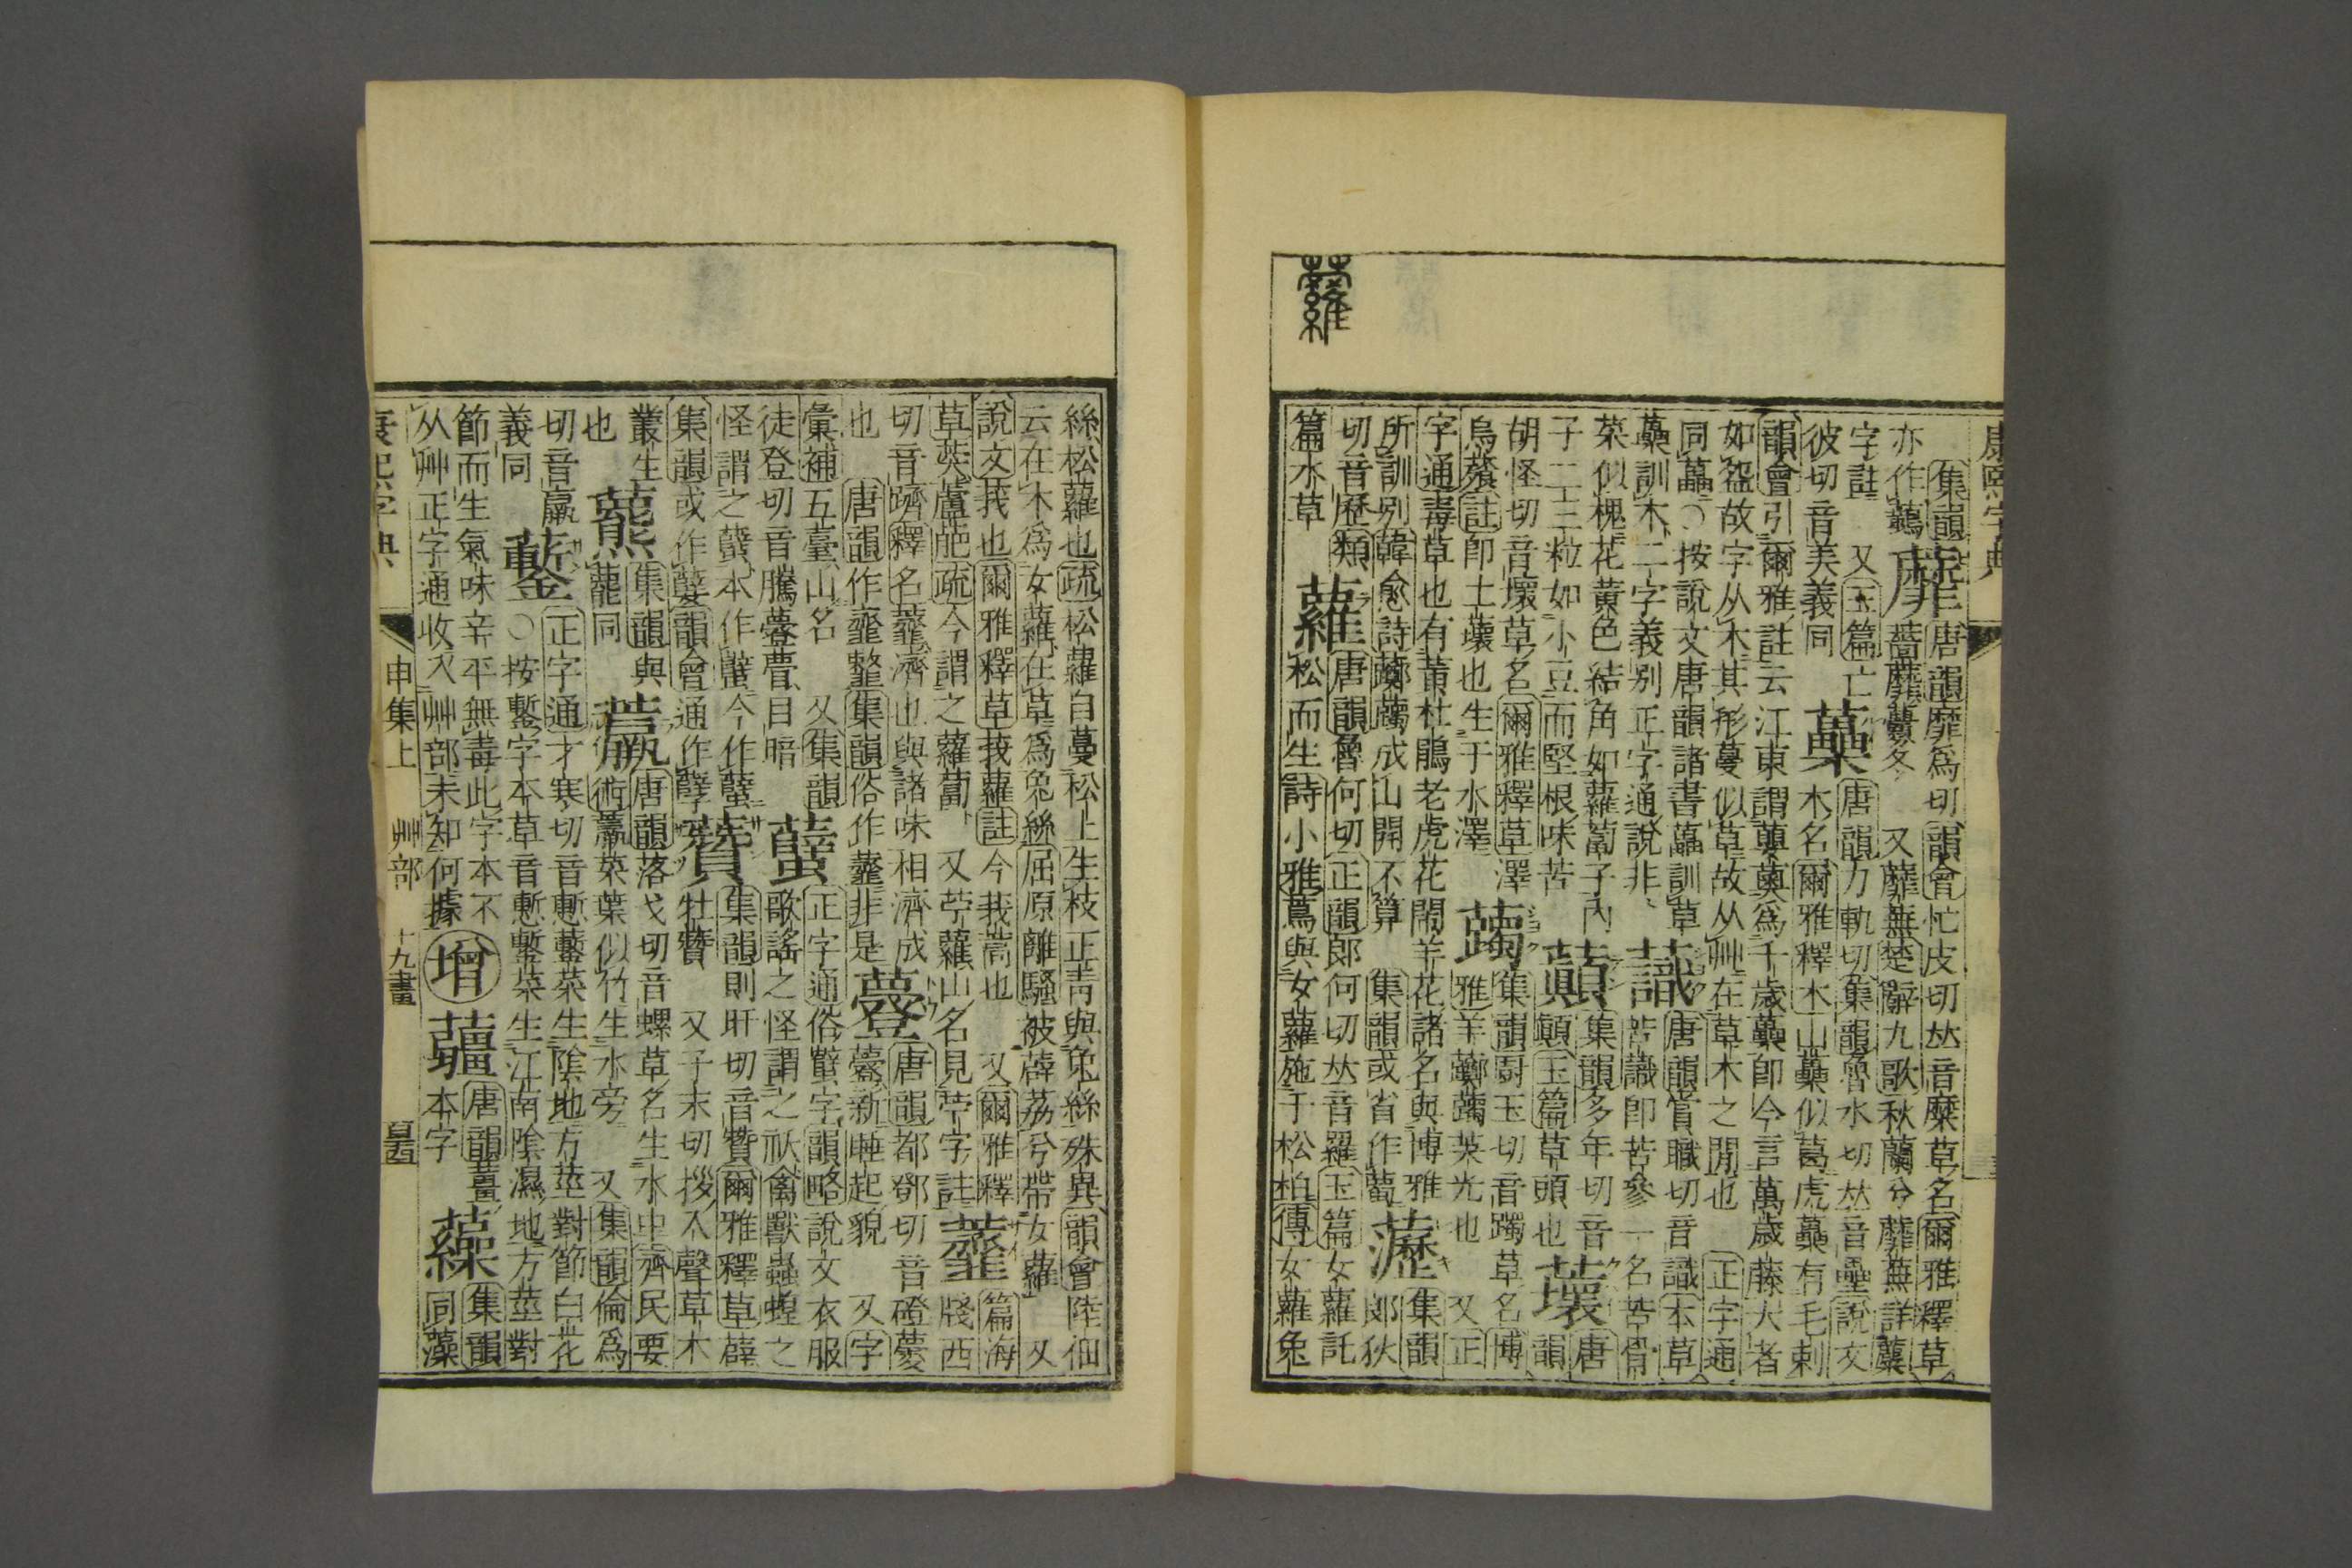 康熙字典
集韻
亦作虋
蘼
唐韻靡爲切韻會忙皮切𠀤音糜草名爾雅釋草
蘠蘼虋冬 又蘼蕪楚辭九歌秋蘭兮蘼蕪詳蘪
字註 又玉篇亡
彼切音美義同
蘽
唐韻力軌切集韻魯水切𠀤音壘說文
木名爾雅釋木山蘽似葛虎蘽有毛刺
韻會引爾雅註云江東謂蘽爲千歲蘽即今言萬歲藤大者
如盌故字从木其形蔓似草故从艸在草木之閒也 正字通
同藟○按說文唐韻諸書藟訓草
蘽訓木二字義別正字通說非
蘵
唐韻賞職切音識本草
苦蘵卽苦參一名苦骨
菜似槐花黃色結角如蘿蔔子內
子二三粒如小豆而堅根味苦
集韻多年切音
顚玉篇草頭也
蘾
唐
韻
胡怪切音壞草名爾雅釋草澤
烏蕵註卽土蘾也生于水澤
集韻厨玉切音躅草名博
雅羊躅英光也 又正
字通毒草也有黃杜鵑老虎花鬧羊花諸名與博雅
所訓別韓愈詩成山開不算 集韻或省作
集韻
郞狄
切音歷類
篇水草
蘿
唐韻魯何切正韻郞何切𠀤音羅玉篇女蘿託
松而生詩小雅蔦與女蘿施于松柏傳女蘿兔
絲松蘿也疏松蘿自蔓松上生枝正靑與兔絲殊異韻會陸佃
云在木爲女蘿在草爲兔絲屈原離騷被薜荔兮帶女蘿 又
說文莪也爾雅釋草莪蘿註今莪蒿也 又爾雅釋
草葖蘆萉疏今謂之蘿蔔 又苧蘿山名見苧字註
虀
篇海
牋西
切音躋釋名虀濟也與諸味相濟成
也 唐韻作韲集韻俗作虀非是
唐韻都鄧切音磴
新睡起貌 又字
彙補五臺山名 又集韻
徒登切音騰瞢目暗
蠥
正字通俗蠥字韻略說文衣服
歌謠之怪謂之祅禽獸蟲蝗之
怪謂之蠥本作蠥今作蠥
集韻或作韻會通作孼
集韻則旰切音贊爾雅釋草薜
牡 又子末切拶入聲草木
叢生
也
集韻與
蘢同
唐韻落戈切音螺草名生水中齊民要
術菜葉似竹生水旁 又集韻倫爲
切音羸
義同
正字通才寒切音慙菜生陰地方莖對節白花
○按字本草音慙菜生江南陰濕地方莖對
節而生氣味辛平無毒此字本不
从艸正字通收入艸部未知何據
增
唐韻薑
本字
集韻
同藻
康熙字典
申集上
艸部
十九畫